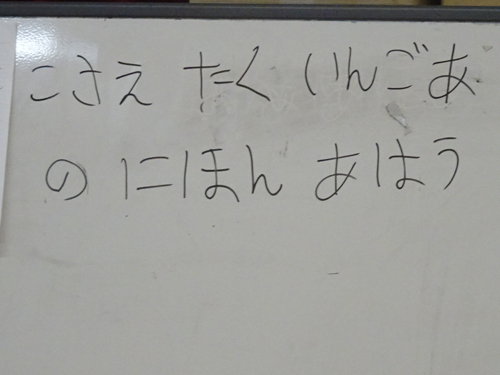 こさえ たく いんごあ
の にほん あはう